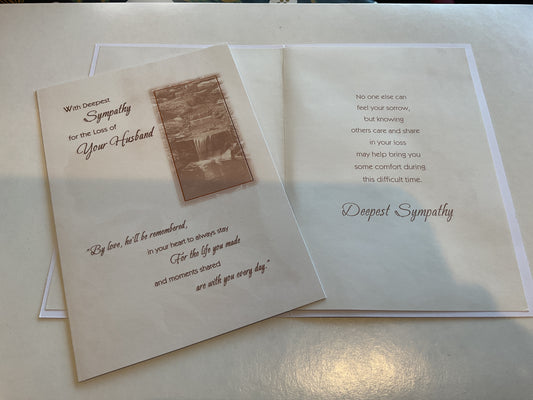 With Deepest
Sympathy
for the Loss of
Your Husband
"By love, he'll be remembered,
in your heart to always stay
For the life you made
and moments shared
are with you every day."
No one else can
feel your sorrow,
but knowing
others care and share
in your loss
may help bring you
some comfort during
this difficult time.
Deepest Sympathy